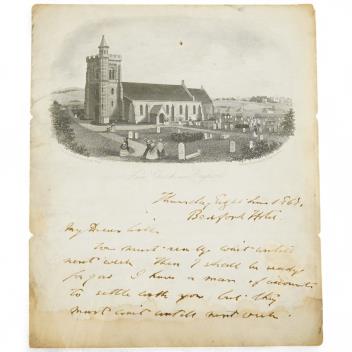 Thursday Night June 1863.
My Dear
You must really wait until
next week. Then I shall be ready
for you I have a mass of accounts
to settle with you but they
must wait until next week.